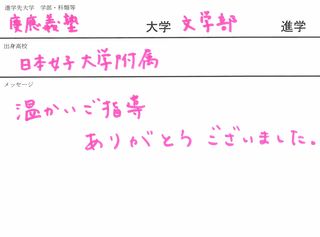 進学先大学 学部・科類等
慶應義塾 大学 文学部 進学
出身高校
日本女子大学附属
メッセージ
温かいご指導
ありがとうございました。